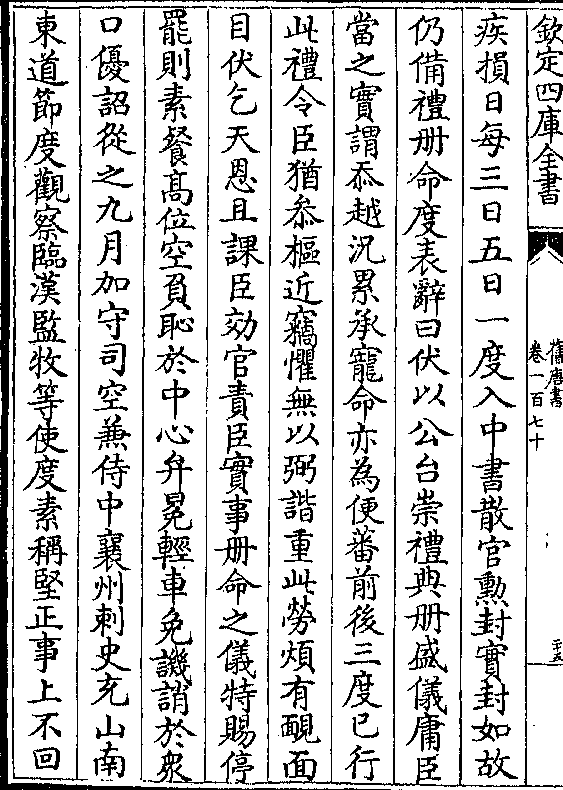 欽定四庫全書
舊唐書
卷一百七十
疾損日每三日五日一度入中書散官勲封實封如故
仍備禮册命度表辭曰伏以公台崇禮典册盛儀庸臣
當之實謂忝越況累承寵命亦為便蕃前後三度已行
此禮令臣猶叅樞近竊懼無以弼諧重此勞煩有靦面
目伏乞天恩且課臣効官責臣實事册命之儀特賜停
罷則素餐髙位空負恥於中心弁冕輕車免譏誚於衆
口優詔從之九月加守司空兼侍中襄州刺史充山南
東道節度觀察臨漢監牧等使度素稱堅正事上不回